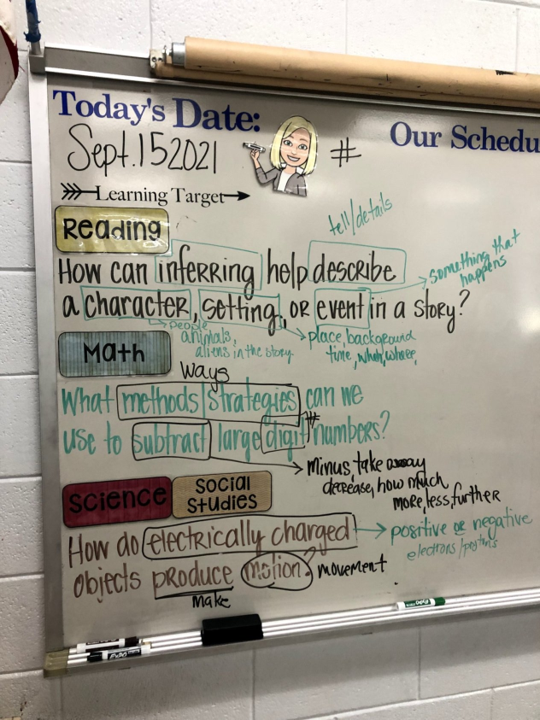 Today's Date:
Our Schedu
Sept. 15 2021
#
Learning Target
tell/details
Reading
How can inferring help describe
something that
happens
a character, setting, or event in a story?
people
animals,
aliens in the story
place, background
time, when, where,
Math
ways
What methods/strategies can we
#
use to subtract large digit numbers?
minus, take away
decrease, how much
more, less, further
Science
Social
Studies
How do electrically charged
positive or negative
electrons/protons
objects produce motion?
movement
make
EXPO